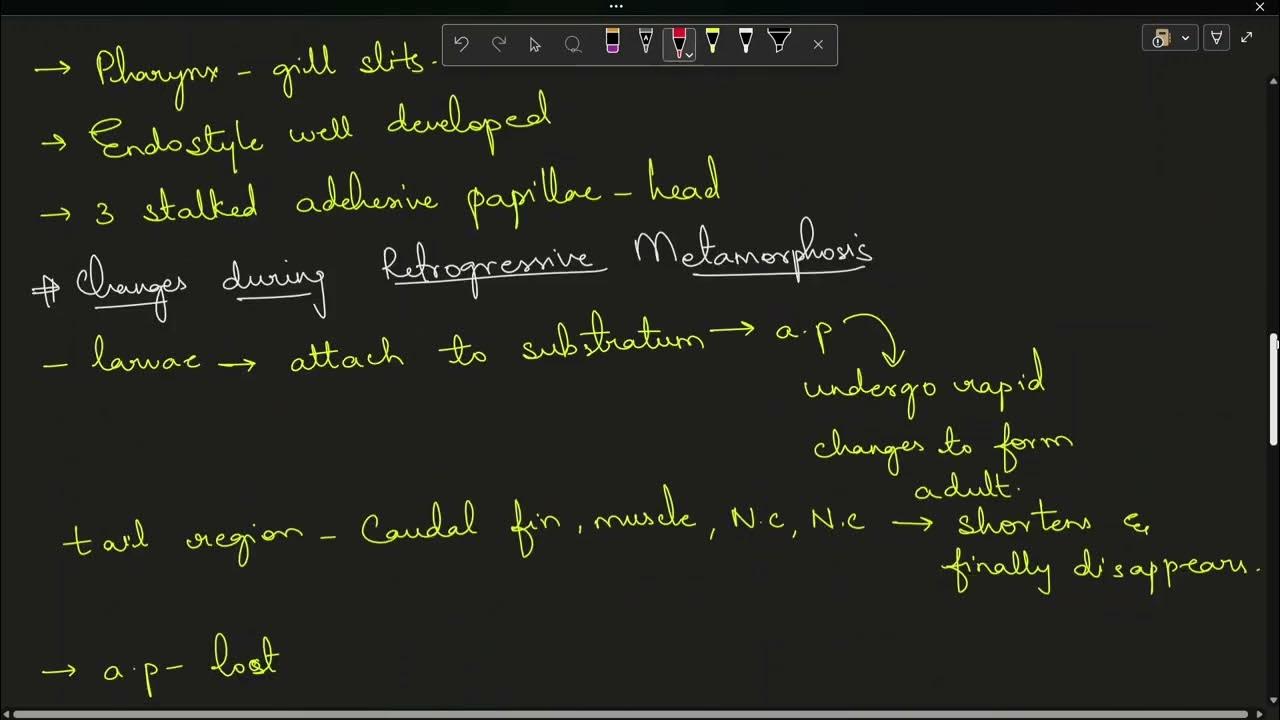 → Pharynx - gill slits.
→ Endostyle well developed
→ 3 stalked adehesive papillae - head
# Changes during Retrogressive Metamorphosis
- larvae → attach to substratum → a.p
undergo rapid
changes to form
adult.
tail region - Caudal fin, muscle, N.c, N.c → shortens &
finally disappears.
→ a.p - lost